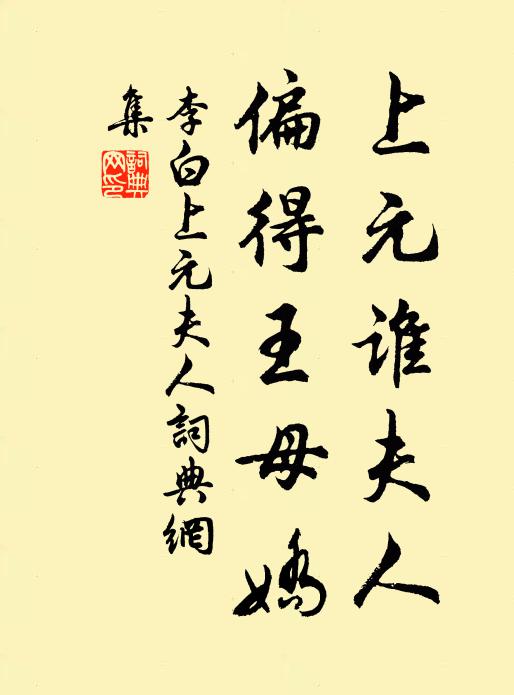 上元誰夫人
偏得王母嬌
李白上元夫人詞典網
集
詞典
网印